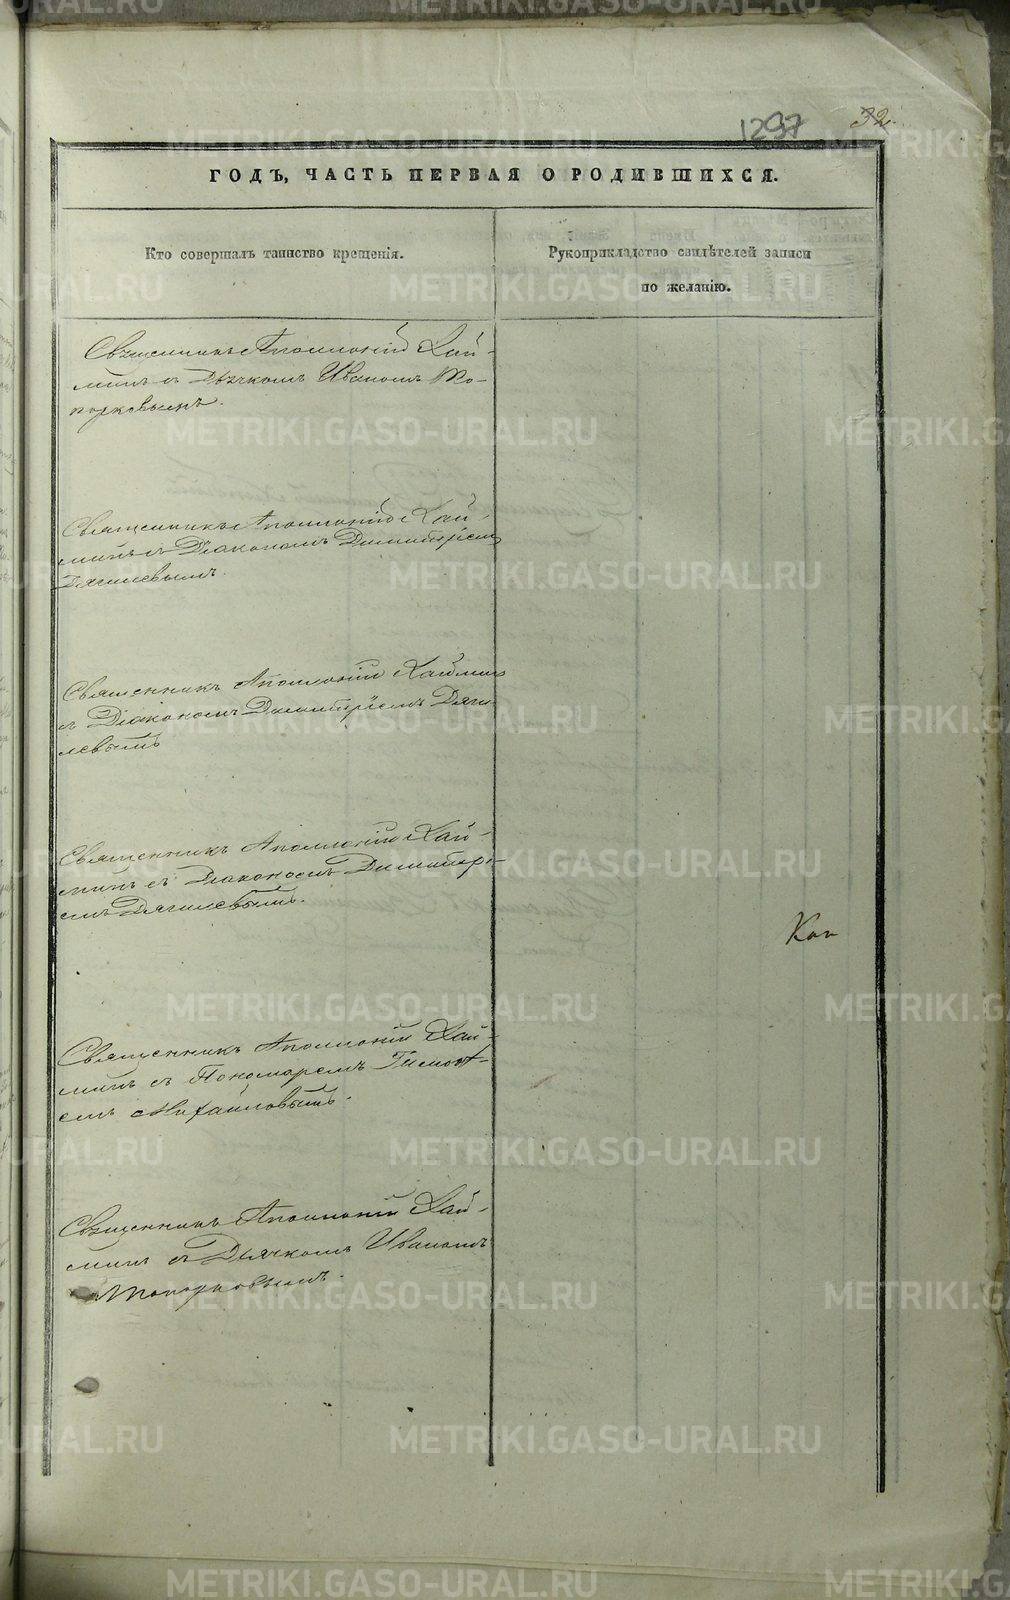 1297 32
ГОДЪ, ЧАСТЬ ПЕРВАЯ О РОДИВШИХСЯ.
Кто совершалъ таинство крещенія.
Рукоприкладство свидѣтелей записи
по желанію.
Священникъ Аполлоній Хай-
минъ съ Дьячкомъ Иваномъ То-
порковымъ.
Священникъ Аполлоній Хай-
минъ съ Діакономъ Димитріемъ
Дягилевымъ.
Священникъ Аполлоній Хайминъ
съ Діакономъ Димитріемъ Дяги-
левымъ
Священникъ Аполлоній Хай-
минъ съ Діакономъ Димитрі-
емъ Дягилевымъ.
Священникъ Аполлоній Хай-
минъ съ Пономаремъ Тимоѳе-
емъ Михайловымъ.
Священникъ Аполлоній Хай-
минъ съ Дьячкомъ Иваномъ
Топорковымъ.
METRIKI.GASO-URAL.RU